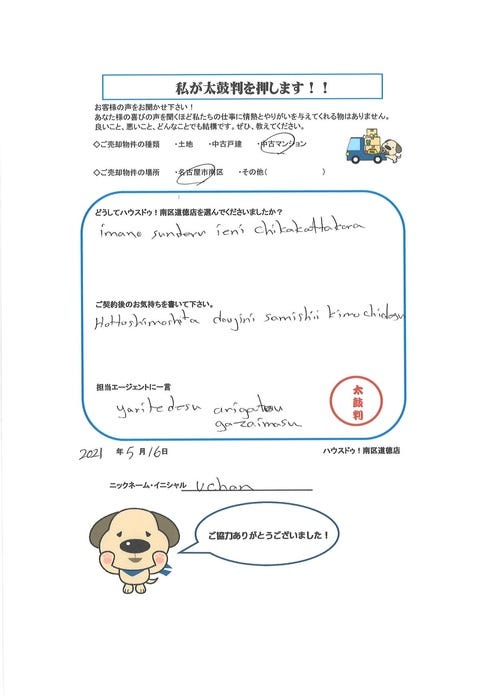 私が太鼓判を押します！！
お客様の声をお聞かせ下さい！
あなた様の喜びの声を聞くほど私たちの仕事に情熱とやりがいを与えてくれる物はありません。
良いこと、悪いこと、どんなことでも結構です。ぜひ、教えてください。
◇ご売却物件の種類　・土地　・中古戸建　・中古マンション
◇ご売却物件の場所　・名古屋市南区　・その他（　　　　　　）
どうしてハウスドゥ！南区道徳店を選んでくださいましたか？
imano sunderu ieni chikakattakara
ご契約後のお気持ちを書いて下さい。
Hottoshimoshita doujini samishii kimochidesu
担当エージェントに一言
yaritedesu arigatou
gozaimasu
太鼓判
2021 年 5 月 16 日
ハウスドゥ！南区道徳店
ニックネーム・イニシャル uchan
ご協力ありがとうございました！